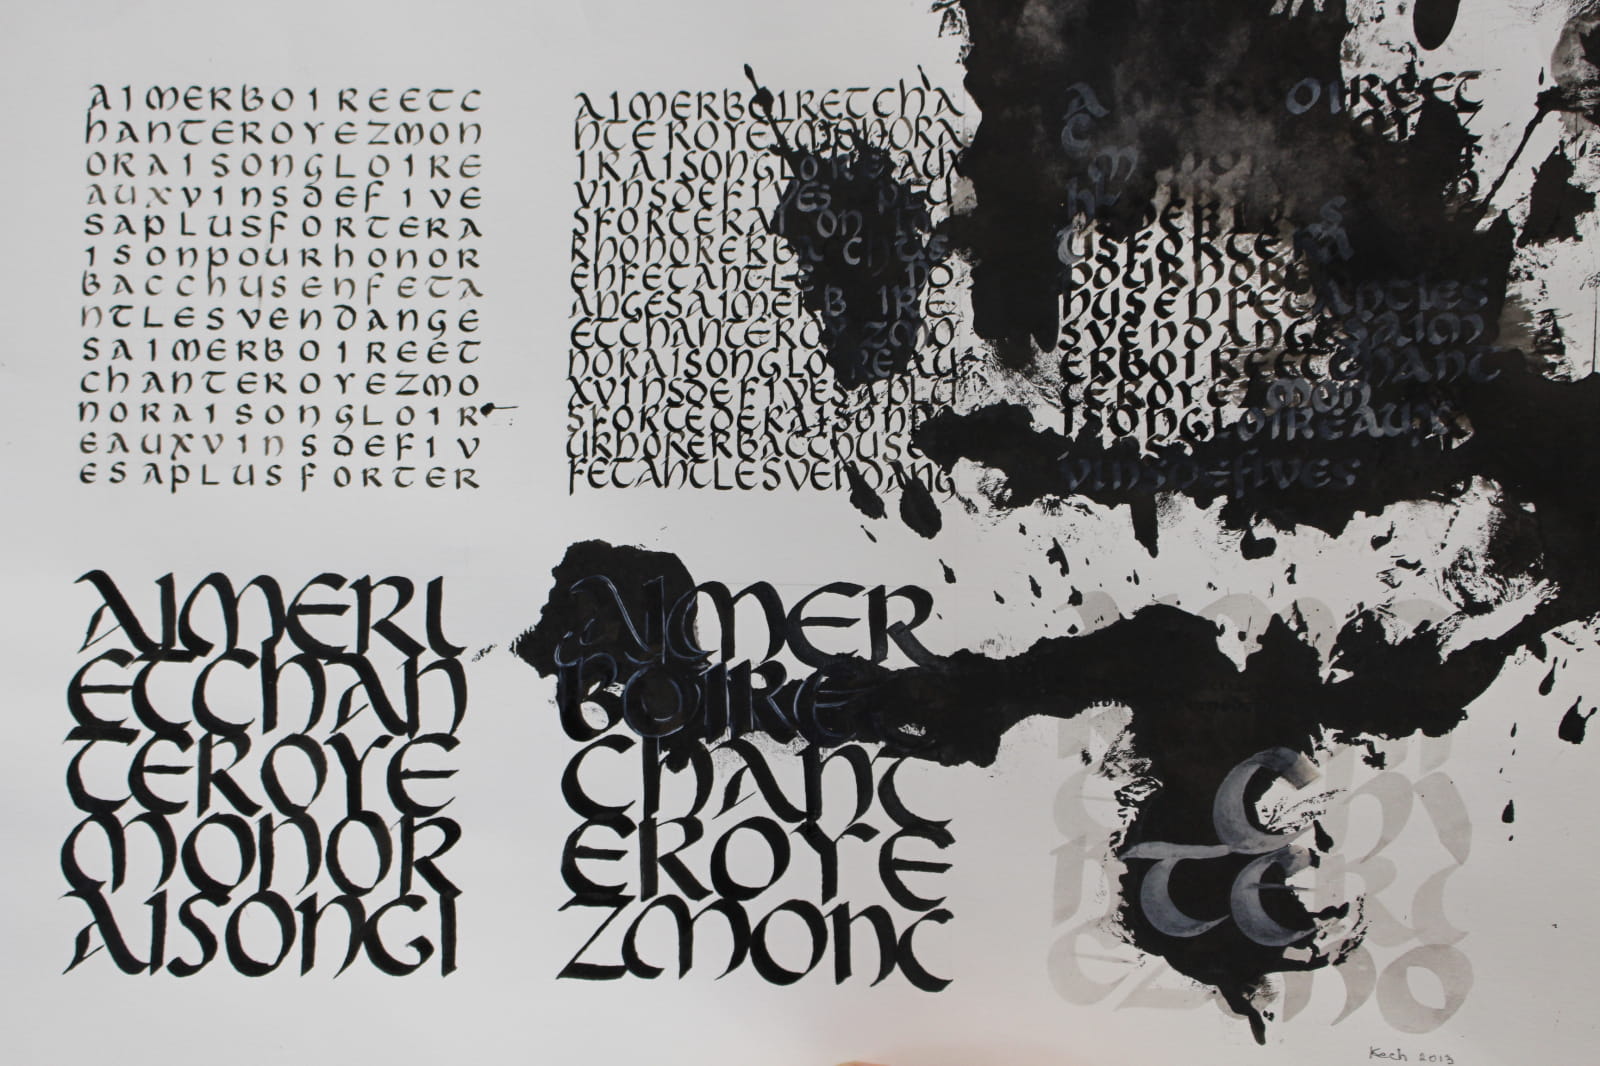 AIMERBOIREETC
HANTEROYEZMON
ORAISONGLOIRE
AUXVINSDEFIVE
SAPLUSFORTERA
ISONPOURHONOR
BACCHUSENFETA
NTLESVENDANGE
SAIMERBOIREET
CHANTEROYEZMO
NORAISONGLOIR
EAUXVINSDEFIV
ESAPLUSFORTER
AIMERBOIRETCHA
NTEROYEZMONORA
IRAISONGLOIREAUX
VINSDEFIVES PLU
SFORTERAI ON
RHONORERBA CHUS
ENFETANTLE DO
ANGESAIMERB IRE
ETCHANTEROY ZMO
NORAISONGLOIREAU
XVINSDEFIVESAPLU
SFORTEDERAISONP
URHORERBACCHUSE
FETANTLESVENDANG
OIREET
USEFORTERA
POURHORE
HUSENFETANTLES
SVENDANGESAIM
ERBOIREETCHANT
TEROYEZMON
ISONGLOIREAUX
VINSDEFIVES
AIMERI
ETCHAN
TEROYE
MONOR
AISONGI
AIMER
BOIRE
CHANT
EROYE
ZMONC
E
TE
EZMO
Kech 2013